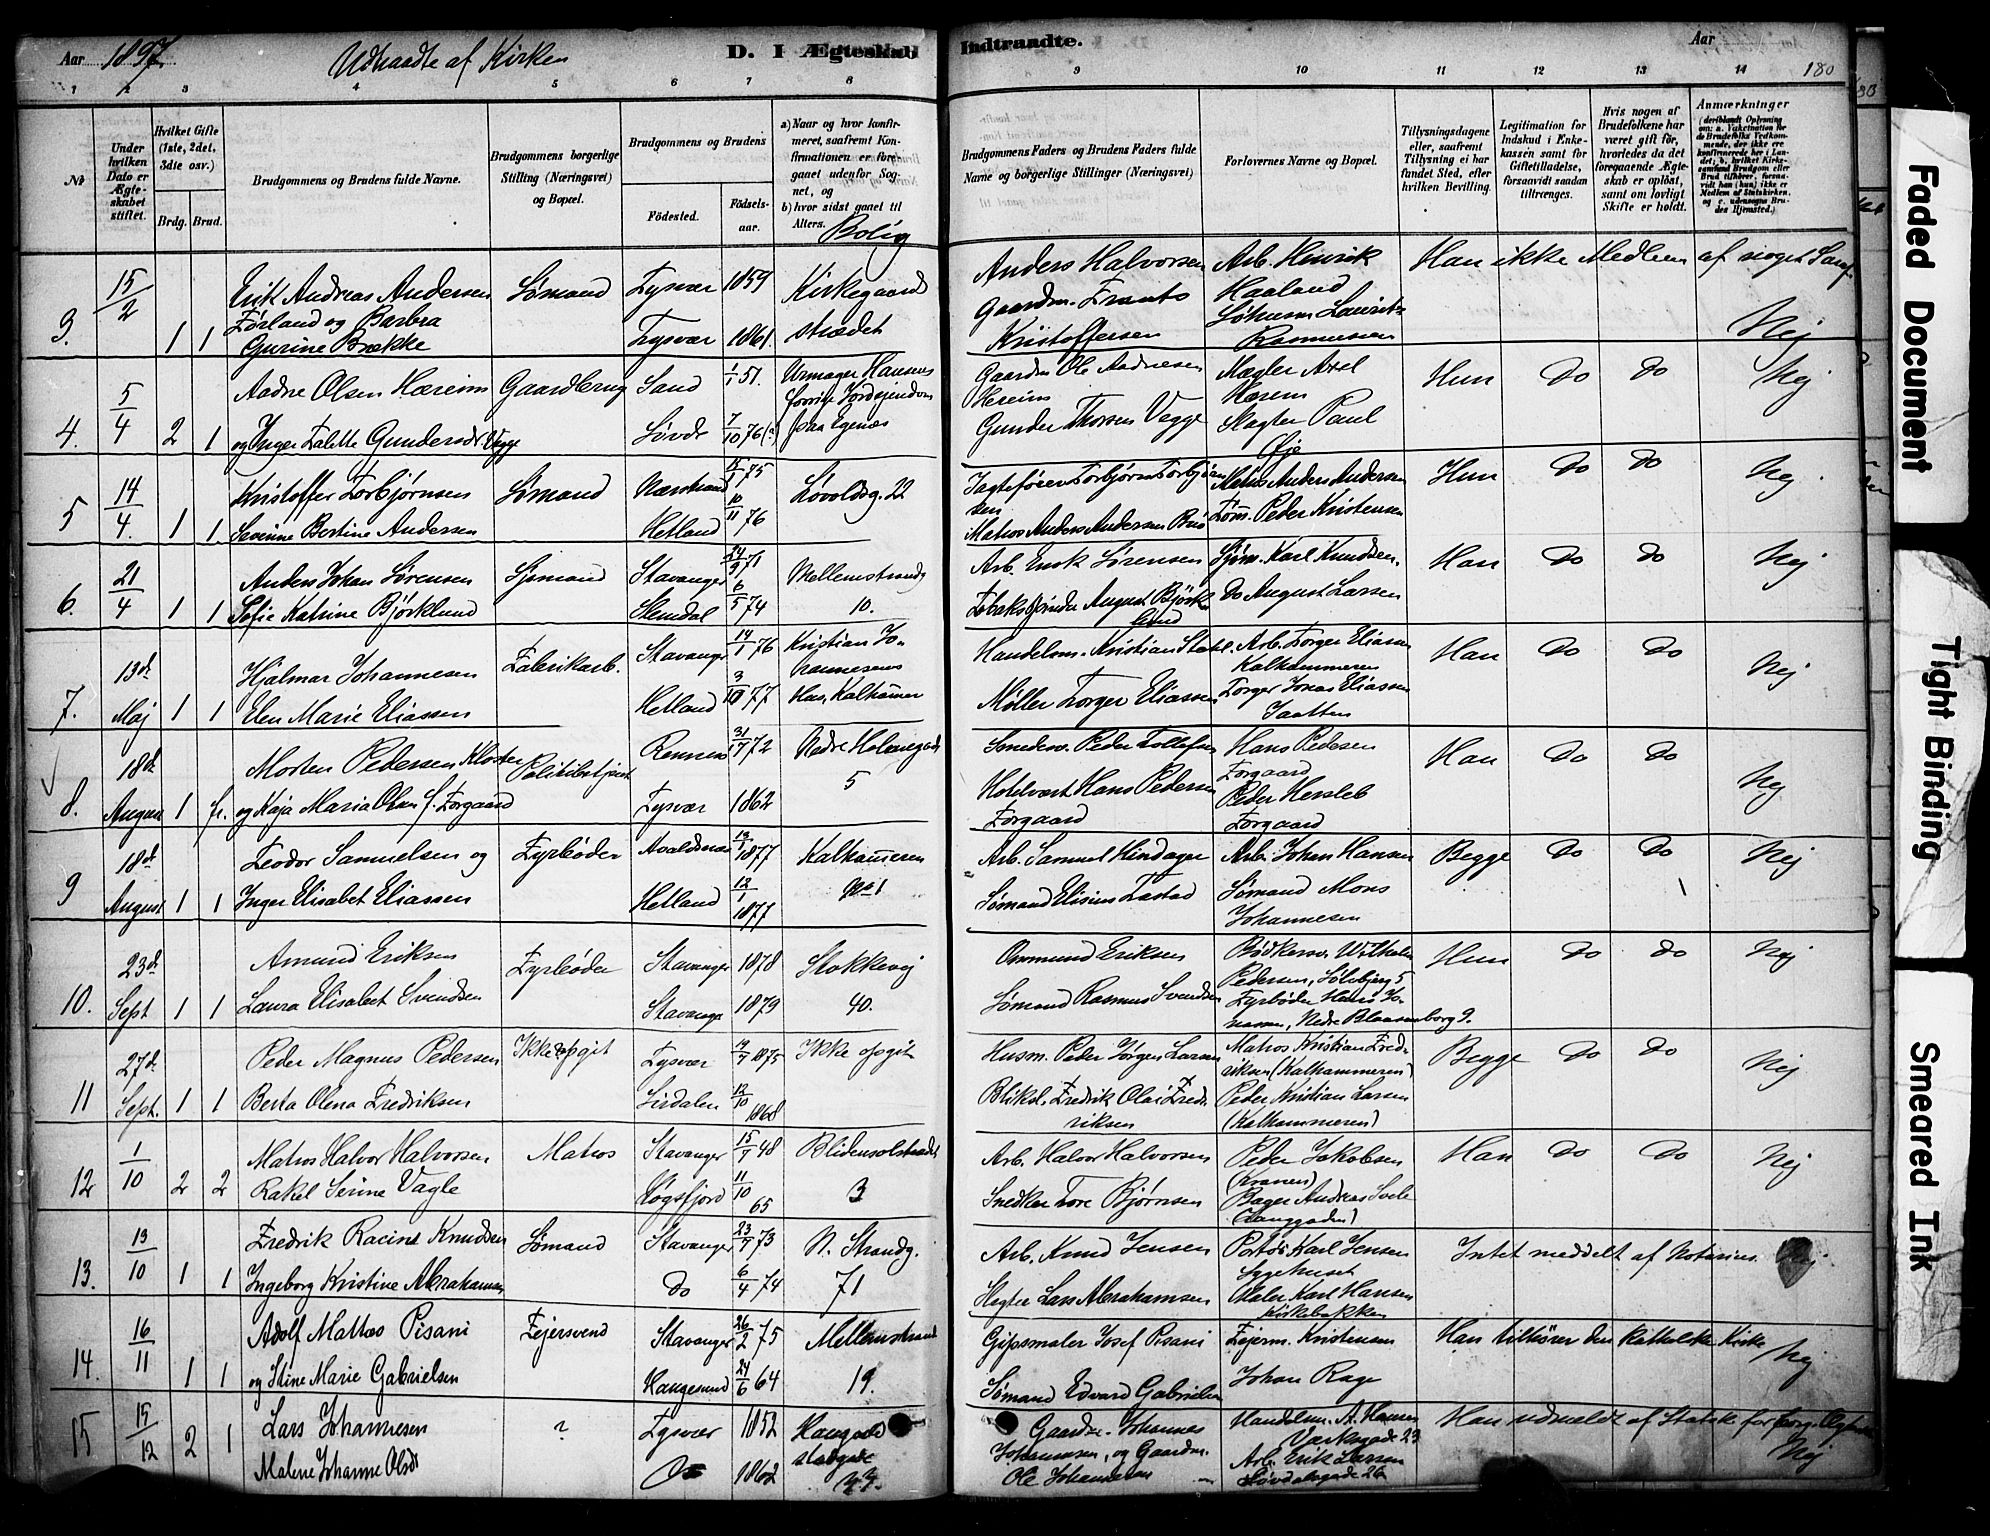 Aar 1897. Udtraadte af Kirken D. I Ægteskab Indtraadte. Aar 180
1 2 3 4 5 6 7 8 9 10 11 12 13 14
№
Under hvilken Dato er Ægteskabet stiftet.
Hvilket Gifte (1ste, 2det, 3dte osv.)
Brdg. Brud.
Brudgommens og Brudens fulde Navne.
Brudgommens borgerlige Stilling (Næringsvei) og Bopæl.
Brudgommens og Brudens
Fødested.
Fødsels-aar.
a) Naar og hvor konfirmeret, saafremt Konfirmationen er foregaaet udenfor Sognet, og
b) hvor sidst gaaet til Alters.
Bolig
Brudgommens Faders og Brudens Faders fulde Navne og borgerlige Stillinger (Næringsvei)
Forlovernes Navne og Bopæl.
Tillysningsdagene eller, saafremt Tillysning ei har fundet Sted, efter hvilken Bevilling.
Legitimation for Indskud i Enkekassen samt for Giftetilladelse, forsaavidt saadan tiltrænges.
Hvis nogen af Brudefolkene har været gift før, hvorledes da det foregaaende Ægteskab er opløst, samt om lovligt Skifte er holdt.
Anmærkninger
3. 15/2 1 1
Erik Andreas Andersen
Førland og Barbra
Gurine Brække
Sømand
Tysvær 1859
Tysvær 1861.
Kirkegaard
strædet
Anders Halvorsen
Gaardm. Frants
Kristoffersen
Arb. Henrik
Haaland
Lauritz
Rasmussen
Han ikke Medlem af noget Samf.
Nej
4. 5/4 2 1
Aadne Olsen Hareim
og Inger Talette Gundersdr Vegge
Gaardbrug
Sand 1/1 51.
7/10 76
Urmager Hansens
paa Egenæs
Gaardm Ole Aadnesen
Hereim
Gunder Thorsen Vegge
Mægler Axel
Harem
Slagter Paul
Øje
Hun Do Do Nej
5 14/4. 1 1
Kristoffer Torbjørnsen
Severine Bertine Andersen
Sømand
Nærstrand 75
Hetland 10/11 76
Løvoldsg. 22
Jagtefører Torbjørn Torbjørn
sen
Matros Anders Andersen
Matros Anders Andersen
Tøm. Peder Kristensen
Hun Do Do Nej
6. 21/4 1 1
Anders Johan Sørensen
Sofie Katrine Bjørklund
Sjømand
Stavanger 24/9 71
6/5 74
Mellemstrandg
10.
Arb. Enok Sørensen
Tobaksspinder August Bjørk
lund
Sjøm. Karl Knudsen.
Do August Larsen
Han Do Do Nej
7. 13de Maj 1 1
Hjalmar Johannesen
Elen Marie Eliassen
Fabrikarb.
Stavanger 14/1 76
Hetland 3/10 77
Kristian Jo-
hannesens
Hus, Kalhamer
Handelsm. Kristian
Møller Torger Eliassen
Arb. Torger Eliassen
Kalhammeren
Torger Jonas Eliassen
Jaatten
Han Do Do Nej
8. 18de August 1 fr.
Morten Pedersen Kloster
og Kaja Maria Olsen f. Torgaard
Politibetjent
Rennesø 31/7 72
Tysvær 1862
Nedre Holmegade
5
Smedesv. Peder Tollefsen
Hotelvært Hans Pedersen
Torgaard
Hans Pedersen
Torgaard
Peder Hersleb
Torgaard
Han Do Do Nej
9 18de August 1 1
Teodor Samuelsen og
Inger Elisabet Eliassen
Fyrbøder
Avaldsnæs 1877
Hetland 12/1 1877
Kalhammeren
No 1
Arb. Samuel Hindager
Sømand Elisius Tastad
Arb. Johan Hansen
Sømand Mons
Johannesen
Begge Do Do Nej
10. 23de Sept 1 1
Amund Eriksen
Laura Elisabet Svendsen
Fyrbøder
Stavanger 1878
Stavanger 1879
Stokkevej
40.
Ommund Eriksen
Sømand Rasmus Svendsen
Bødkersv. Wilhelm
Pedersen, Sølvbjerg 5
Fyrbøder Hans Jo-
nasen, Nedre Blaasenborg 9.
Hun Do Do Nej
11 27de Sept. 1 1
Peder Magnus Pedersen
Berta Olena Fredriksen
Ikke opgit
Tysvær 1875
Sirdalen 12/10 1868
Ikke opgit
Husm. Peder Jørgen Larsen
Bliksl. Fredrik Olai Fred-
riksen
Matros Kristian Fred-
riksen (Kalhammeren)
Peder Kristian Larsen
(Kalhammeren)
Begge Do Do Nej
12 1/10 2 2
Matros Halvor Halvorsen
Rakel Serine Vagle
Matros
Stavanger 15/7 48
Høgsfjord 11/10 65
Blidensolstrædet
3
Arb. Halvor Halvorsen
Snedker Tore Bjørnsen
Peder Jakobsen
(Kranen)
Bager Andreas Svele
(Langgaden)
Han Do Do Nej
13. 13/10 1 1
Fredrik Racine Knudsen
Ingeborg Kristine Abrahamsen
Sømand
Stavanger 23/7 73
Do 6/4 74
N. Strandg.
71
Arb. Knud Jensen
Slagter Lars Abrahamsen
Karl Jensen
Sygehuset
Maler Karl Hansen
Kirkebakken
Intet meddelt af Notarius. Nej
14. 16/11 1 1
Adolf Mattæo Pisani
og Stine Marie Gabrielsen
Fejersvend
Stavanger 26/2 75
Haugesund 24/6 64
Mellemstrand
19.
Gipsmaler Josef Pisani
Sømand Edvard Gabrielsen
Fejerm. Kristensen
Johan Rage
Han tilhører den katholske Kirke
Nej
15 15/12 2 1
Lars Johannesen
Malene Johanne Olsdr
?
Tysvær 1852
Do 1862
Haugvald
stadgade
Gaardm. Johannes
Johannesen, og Gaardm.
Ole Johannesen
Handelsm. A. Hansen
Værksgade 23
Arb. Erik Larsen
Løvdalsgade 26
Han udmeldt af Statsk.
Nej
Faded Document
Tight Binding
Smeared Ink